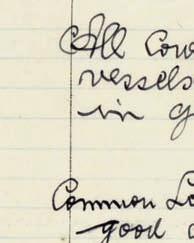 All Cow
vessels
in g
Common Lo
good